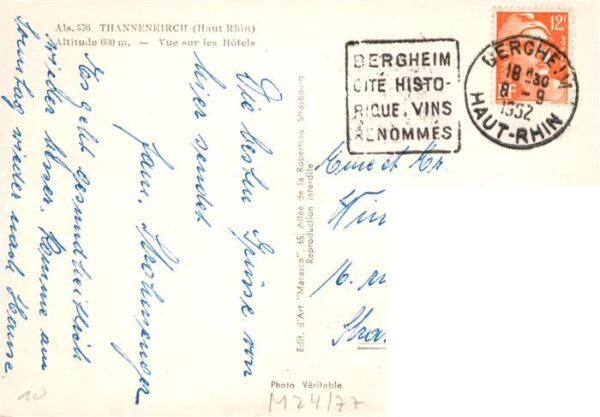 Als. 576 THANNENKIRCH (Haut Rhin)
Altitude 600 m. — Vue sur les Hôtels
Die besten Grüsse von
hier sendet
Fam.
Es geht gesundheitlich
wieder besser. Komme am
Sonntag wieder nach Hause.
Edit. d'Art "Marasco", 65, Allée de la Robertsau, Strasbourg
Reproduction interdite
Photo Véritable
M24/77
10
BERGHEIM
CITÉ HISTO-
RIQUE. VINS
RENOMMÉS
12F
RF
BERGHEIM
18 H30
8 - 9
1952
HAUT-RHIN
et
Stra